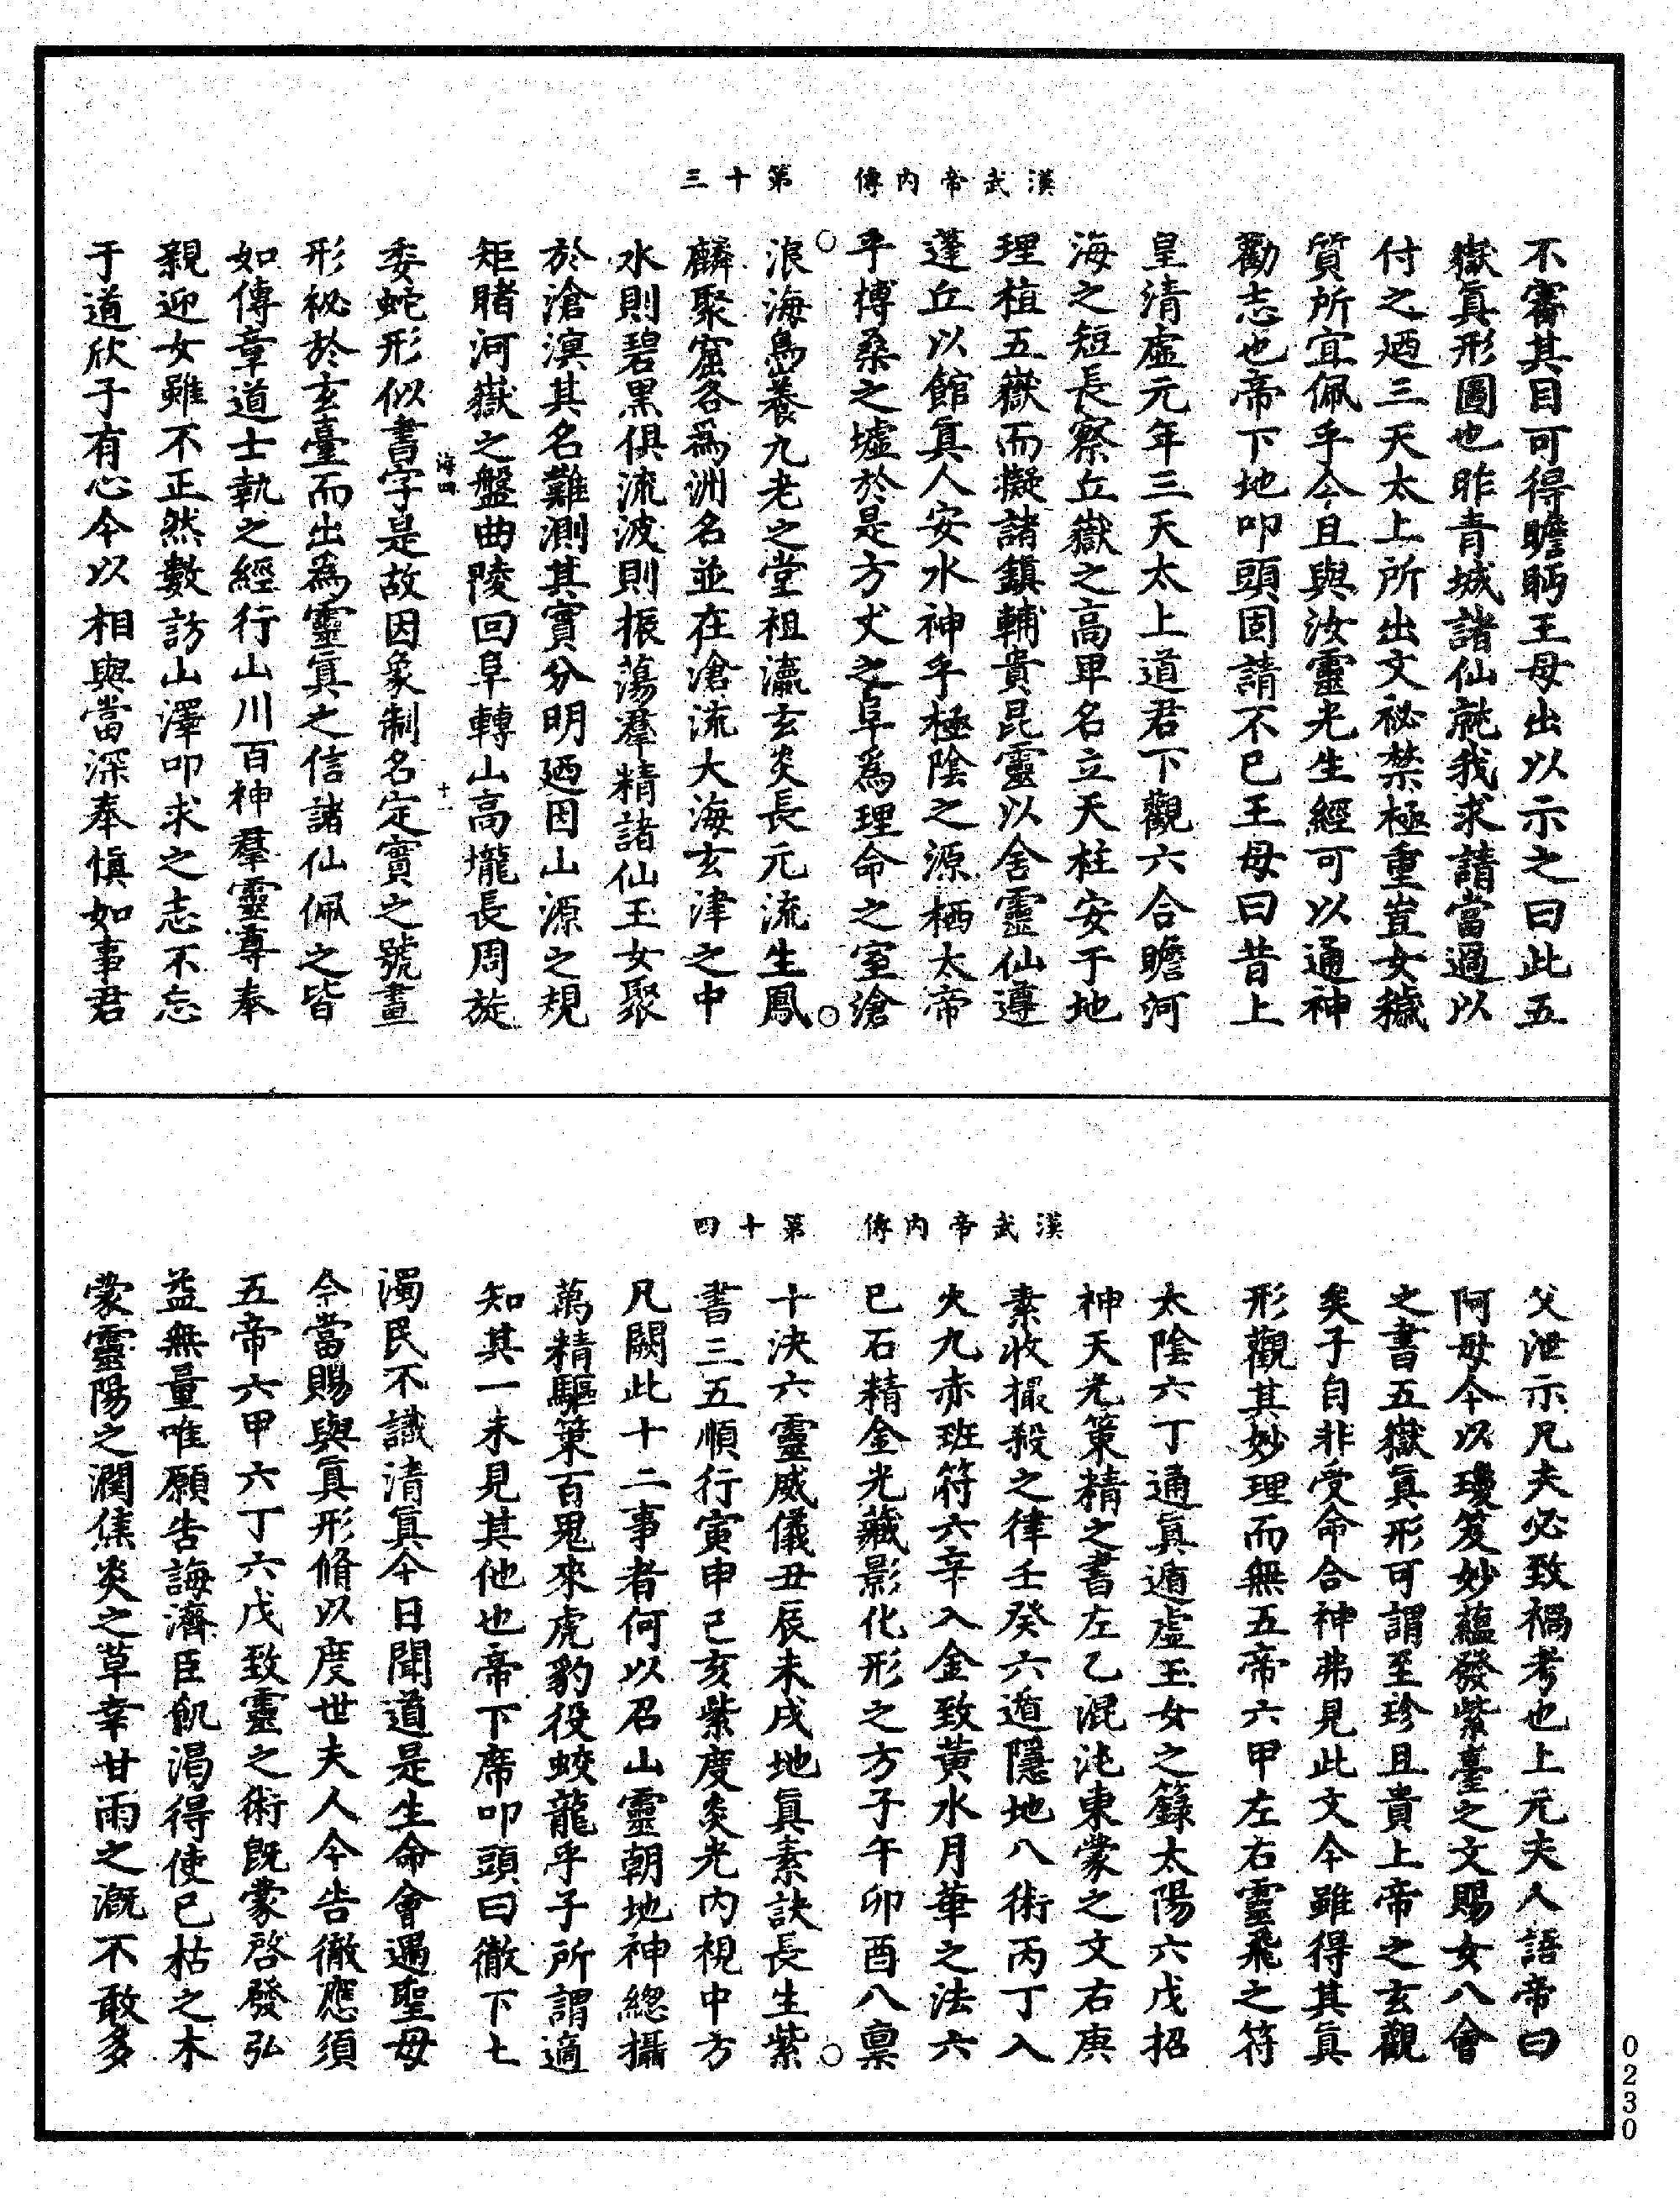 漢武帝内傳　第十三
不審其目可得瞻眄王母出以示之曰此五
嶽眞形圖也昨青城諸仙就我求請當過以
付之廼三天太上所出文祕禁極重豈女穢
質所宜佩乎今且與汝靈光生經可以通神
勸志也帝下地叩頭固請不已王母曰昔上
皇清虛元年三天太上道君下觀六合瞻河
海之短長察丘嶽之高卑名立天柱安于地
理植五嶽而擬諸鎮輔貴昆靈以舍靈仙遵
蓬丘以館眞人安水神乎極陰之源栖太帝
乎搏桑之墟於是方丈之阜爲理命之室滄
浪海島養九老之堂祖瀛玄炎長元流生鳳
麟聚窟各爲洲名並在滄流大海玄津之中
水則碧黑俱流波則振蕩羣精諸仙玉女聚
於滄溟其名難測其實分明廼因山源之規
矩睹河嶽之盤曲陵回阜轉山高壠長周旋
海四　十一
委蛇形似書字是故因象制名定實之號畫
形祕於玄臺而出爲靈眞之信諸仙佩之皆
如傳章道士執之經行山川百神羣靈尊奉
親迎女雖不正然數訪山澤叩求之志不忘
于道欣子有心今以相與當深奉愼如事君
漢武帝内傳　第十四
父泄示凡夫必致禍考也上元夫人語帝曰
阿母今以瓊笈妙蘊發紫臺之文賜女八會
之書五嶽眞形可謂至珍且貴上帝之玄觀
矣子自非受命合神弗見此文今雖得其眞
形觀其妙理而無五帝六甲左右靈飛之符
太陰六丁通眞遁虛玉女之籙太陽六戊招
神天光策精之書左乙混沌東蒙之文右庚
素收攝殺之律壬癸六遁隱地八術丙丁入
火九赤班符六辛入金致黃水月華之法六
已石精金光藏影化形之方子午卯酉八稟
十決六靈威儀丑辰未戌地眞素訣長生紫
書三五順行寅申已亥紫度炎光内視中方
凡闕此十二事者何以召山靈朝地神總攝
萬精驅策百鬼來虎豹役蛟龍乎子所謂適
知其一未見其他也帝下席叩頭曰徹下七
濁民不識清眞今日聞道是生命會遇聖母
今當賜與眞形脩以度世夫人今告徹應須
五帝六甲六丁六戊致靈之術旣蒙啓發弘
益無量唯願告誨濟臣飢渴得使已枯之木
蒙靈陽之潤焦炎之草幸甘雨之溉不敢多
0230